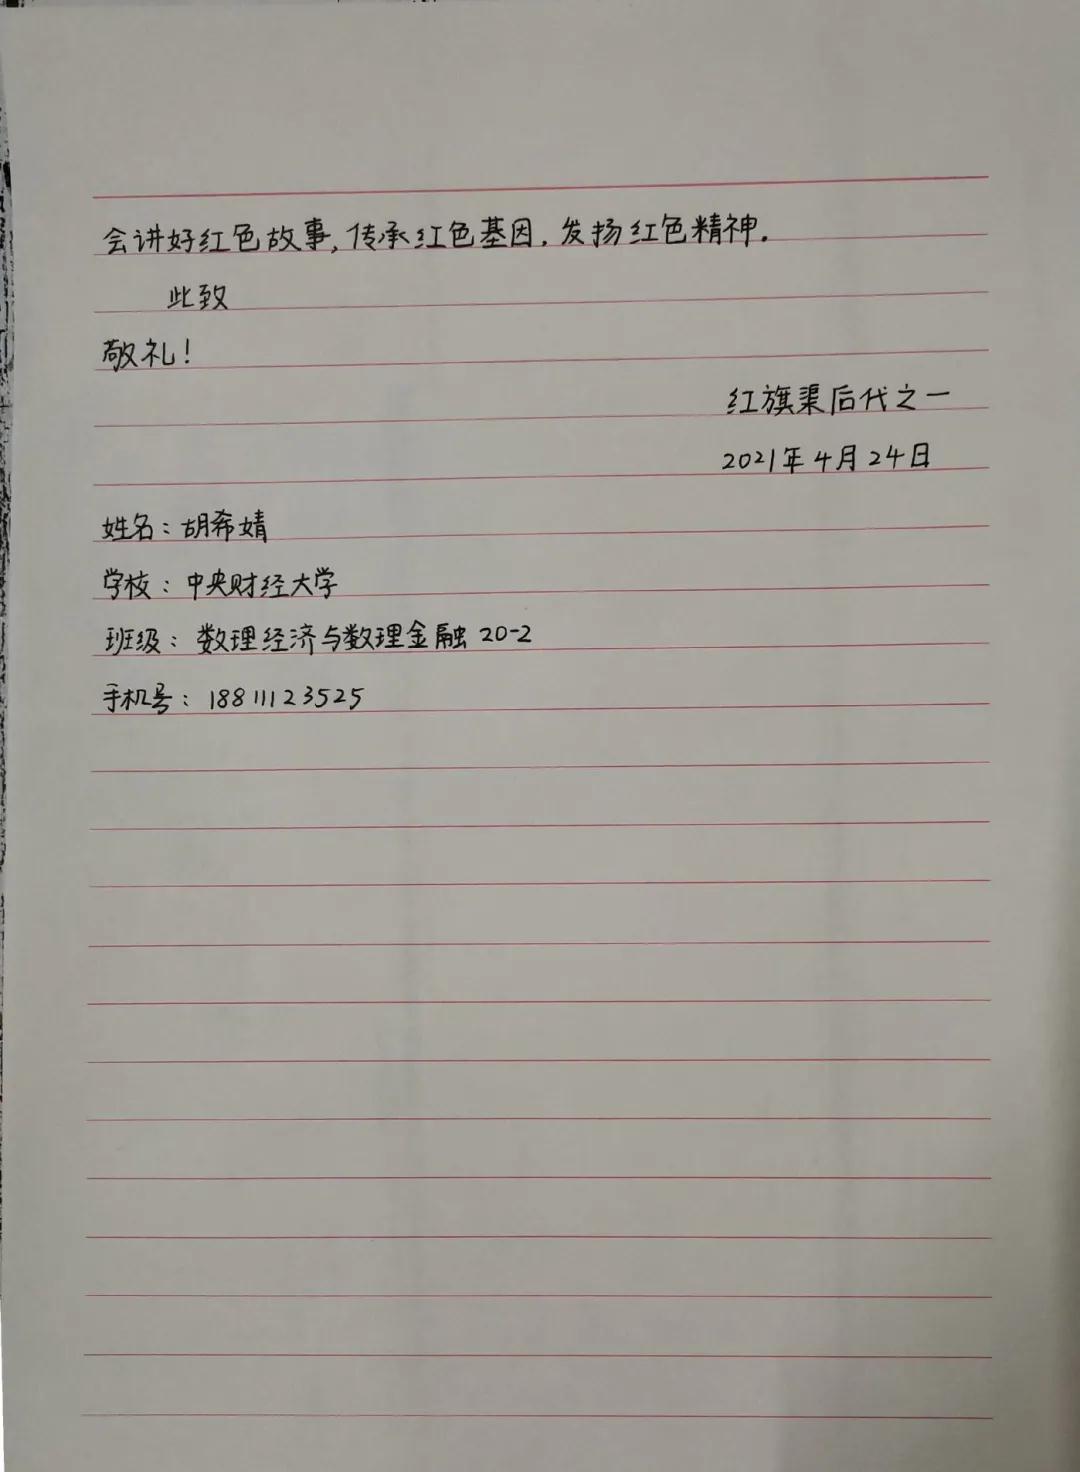 会讲好红色故事,传承红色基因,发扬红色精神.
此致
敬礼!
红旗渠后代之一
2021年4月24日
姓名:胡希婧
学校:中央财经大学
班级:数理经济与数理金融20-2
手机号:18811123525